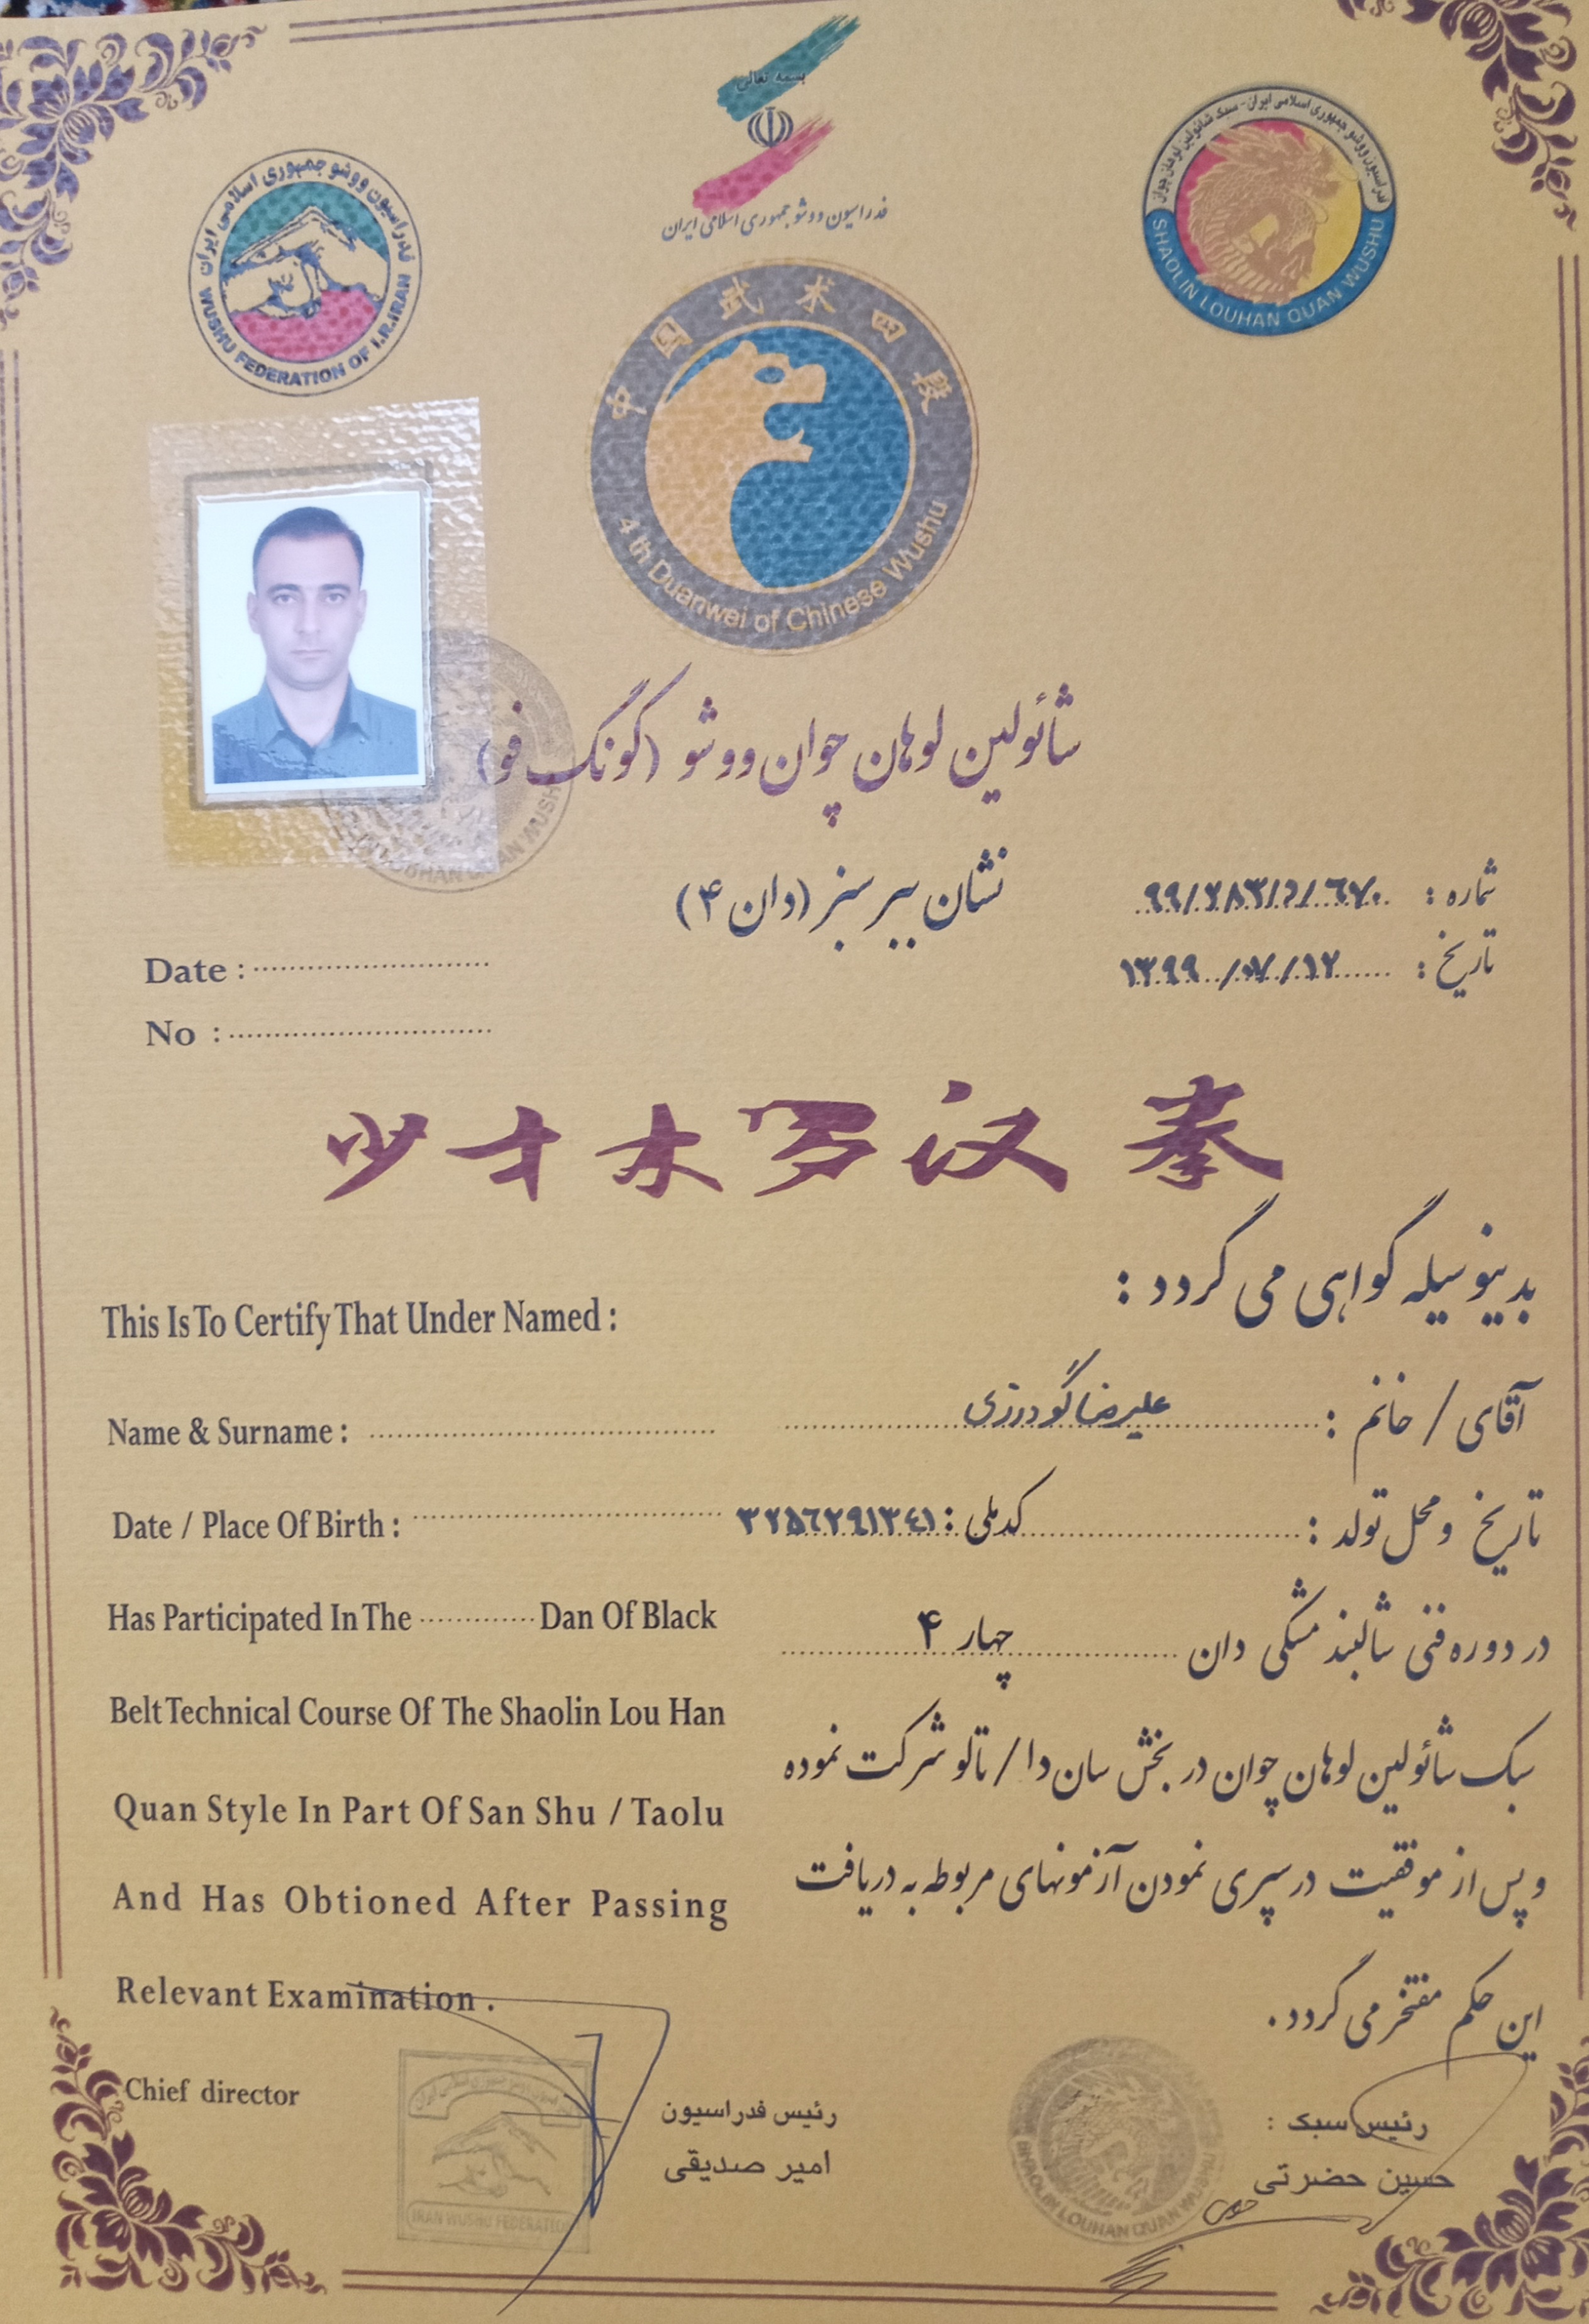 بسمه تعالی
فدراسیون ووشو جمهوری اسلامی ایران
فدراسیون ووشو جمهوری اسلامی ایران
WUSHU FEDERATION OF I.R.IRAN
فدراسیون ووشو جمهوری اسلامی ایران - سبک شائولین لوهان چوان
SHAOLIN LOUHAN QUAN WUSHU
中国武术四段
4 th Duanwei of Chinese Wushu
شائولین لوهان چوان ووشو (کونگ فو)
نشان ببر سبز (دان ۴)
شماره : ۹۹/۲۸۳/د/۶۷۰
تاریخ : ۱۳۹۹/۰۷/۱۲
Date :
No :
少才木罗汉拳
بدینوسیله گواهی می گردد :
This Is To Certify That Under Named :
آقای / خانم : علیرضا گودرزی
Name & Surname :
تاریخ و محل تولد : کدملی : ۳۲۵۶۲۹۱۳۴۱
Date / Place Of Birth :
در دوره فنی شالبند مشکی دان چهار ۴
Has Participated In The Dan Of Black
سبک شائولین لوهان چوان در بخش سان دا / تالو شرکت نموده
Belt Technical Course Of The Shaolin Lou Han
Quan Style In Part Of San Shu / Taolu
و پس از موفقیت در سپری نمودن آزمونهای مربوطه به دریافت
And Has Obtioned After Passing
این حکم مفتخر می گردد .
Relevant Examination .
Chief director
رئیس فدراسیون
امیر صدیقی
رئیس سبک :
حسین حضرتی
IRAN WUSHU FEDERATION
SHAOLIN LOUHAN QUAN WUSHU